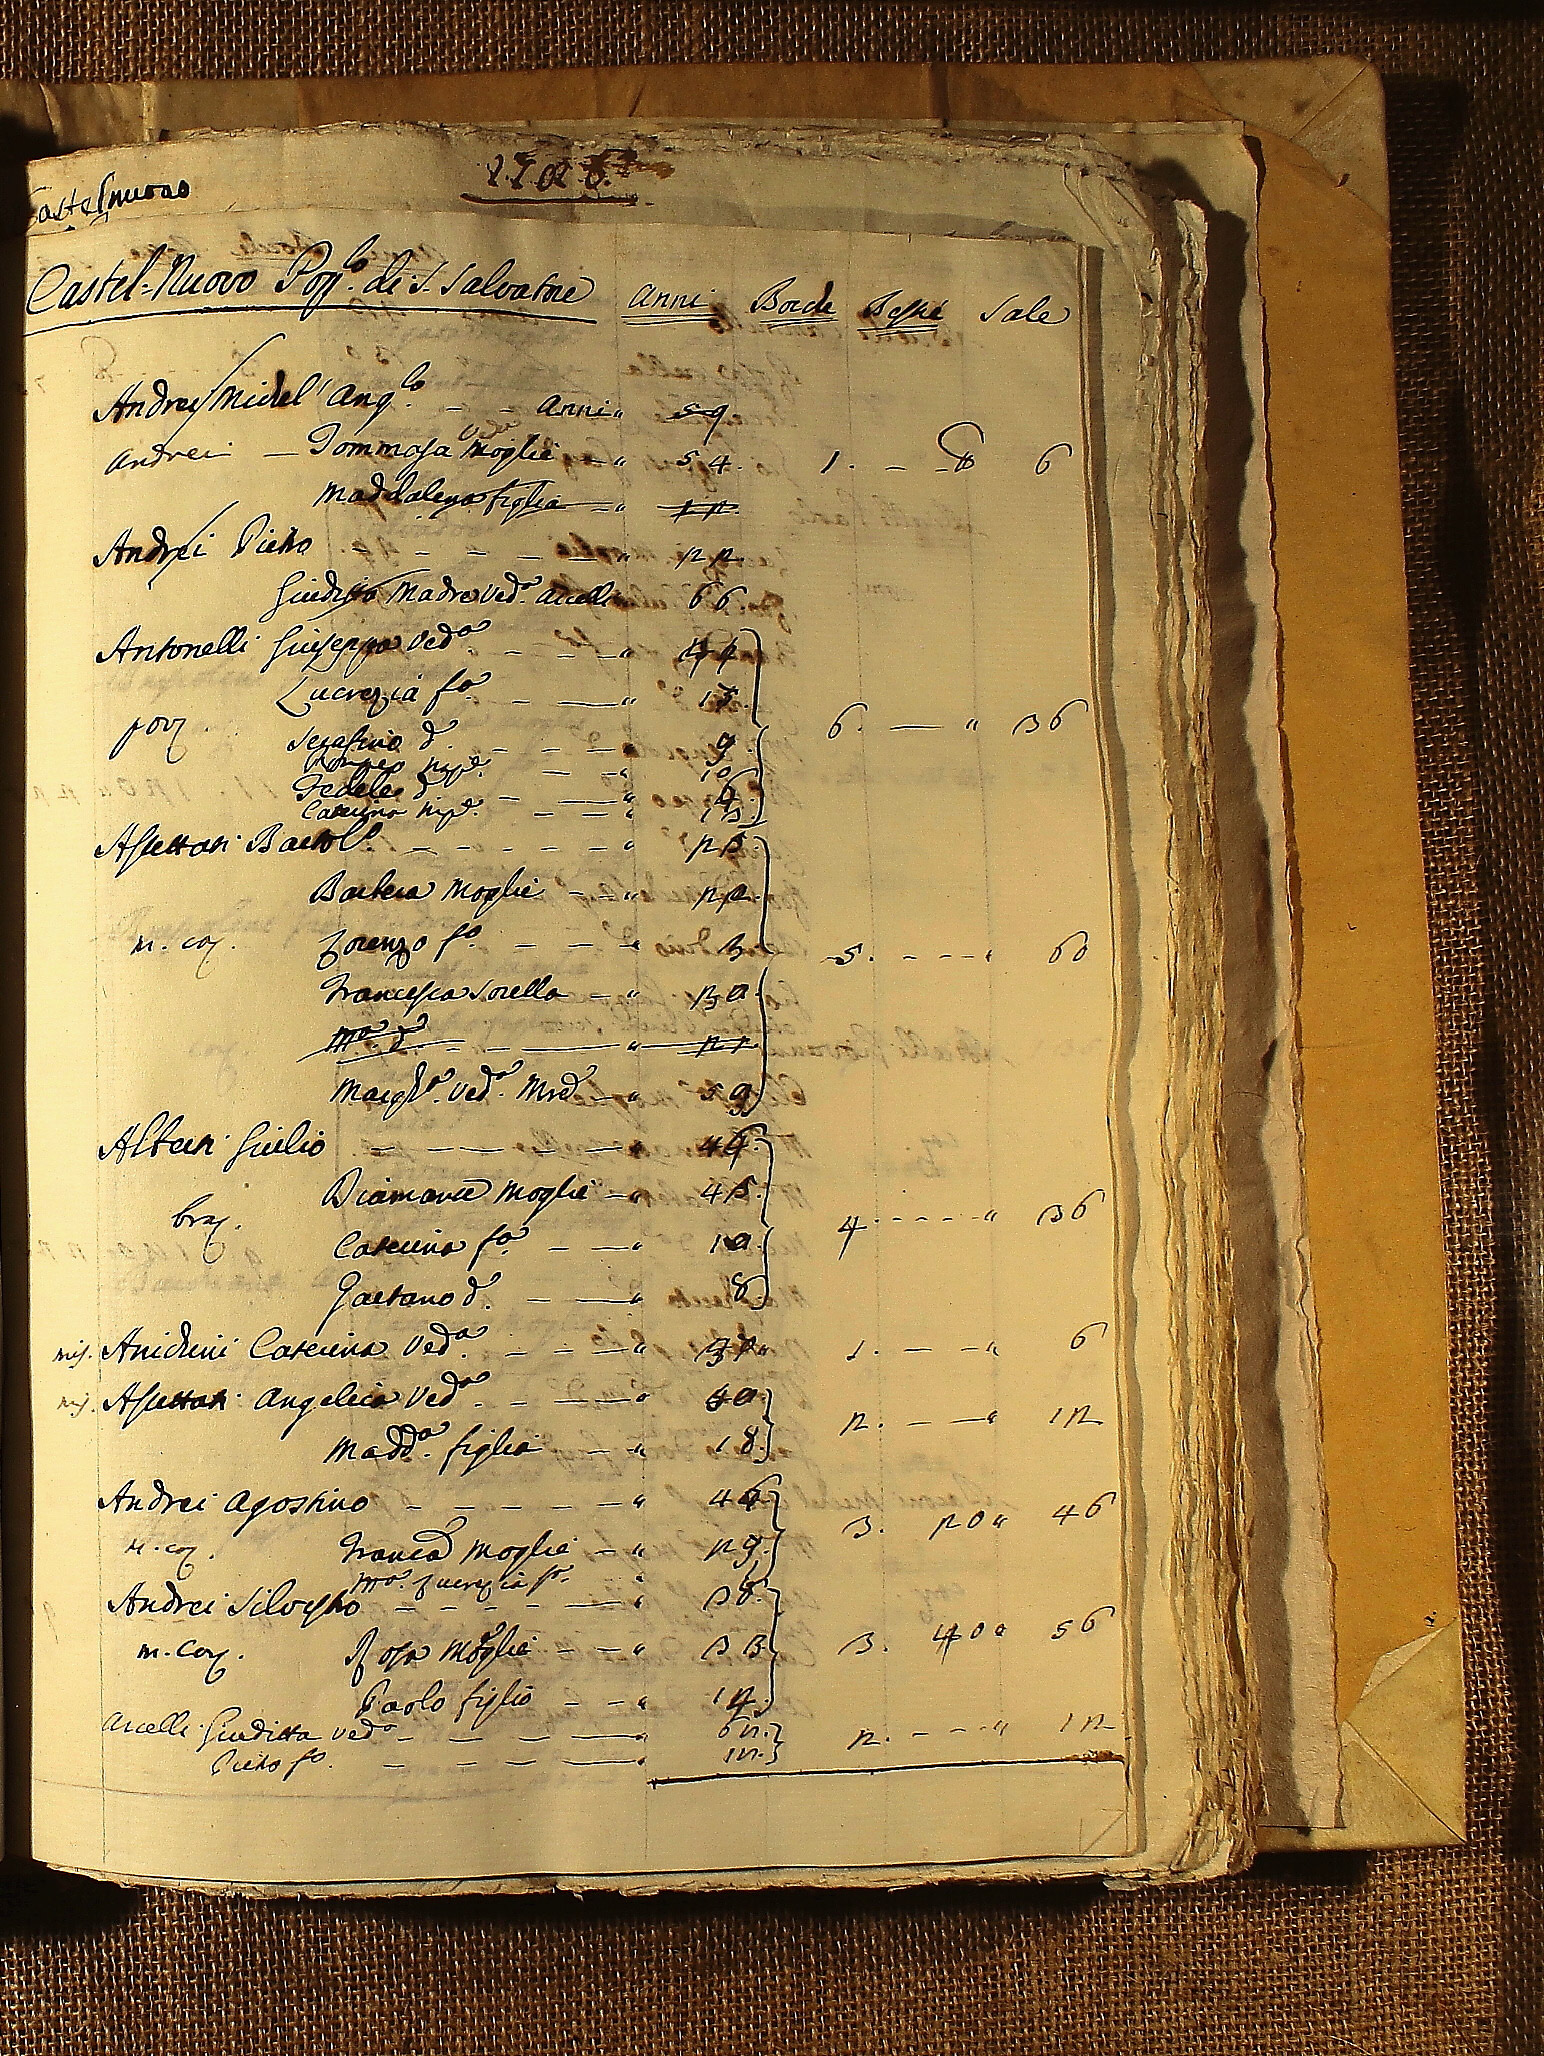 Castelnuovo
Castel-Nuovo Pop.lo di S. Salvatore Anni Bocche Bestie Sale
Andrei Michel' Ang.lo - - Anni " 59
Andrei - Tommasa Ved.a Moglie - " 54. 1. - - 6
Maddalena figlia - "
Andrei Pietro - - - - " 22.
Giuditta Madre Ved.a Arcelli 66.
Antonelli Giuseppa Ved.a - - - "
Lucrezia f.a - - - " 15.
pov. 6. - " 36
Serafino d.o - - - - 9.
Romeo nip.e - - " 10
Fedele d.o - - "
Caterina nip.e - - " 13
Assettati Bartol.o - - - - - " 25.
Barbera Moglie - - " 22.
m. coz. Lorenzo f.o - - - - " 3 5. - - - " 60
Francesca Sorella - - " 30.
M.a d.a - - - " 21.
Margh.a Ved.a Mad.e - " 59.
Alteri Giulio - - - - - " 46.
Diamante Moglie - " 45.
braz. 4. - - - - " 36
Caterina f.a - - " 10.
Gaetano d.o - - " 8.
mis. Anichini Caterina Ved.a - - - " 1. - - " 6
mis. Assettati Angelica Ved.a - - " 40.
2. - - " 12
Madd.a figlia - - " 18.
Andrei Agostino - - - - - " 46.
3. 20 " 46
m. coz. Franc.a Moglie - - " 29.
M.a Lucrezia f.a "
Andrei Silvestro - - - - - " 38.
m. coz. Rosa Moglie - - " 33. 3. 40 " 56
Paolo figlio - - " 14.
Arcelli Giuditta Ved.a - - - " 62. 2. - - " 12
Pietro f.o - - - - "